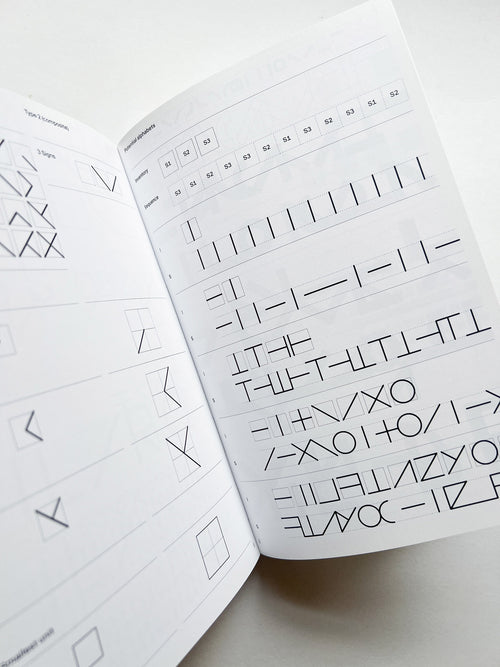 Type 2 (composite)
3 Signs
Potential alphabets
Inventory
S1 S2 S3
Sequence
S3 S1 S2 S3 S3 S2 S1 S3 S2 S3 S1 S2